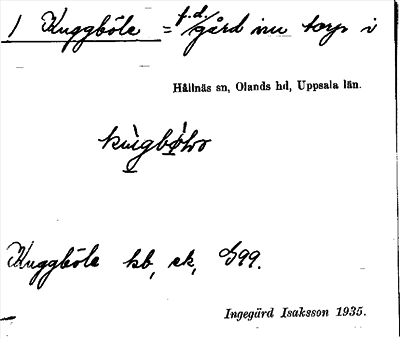 1 Kuggböle = f.d. gård nu torp i
Hållnäs sn, Olands hd, Uppsala län.
Kuggböle kb, ek,
Ingegärd Isaksson 1935.